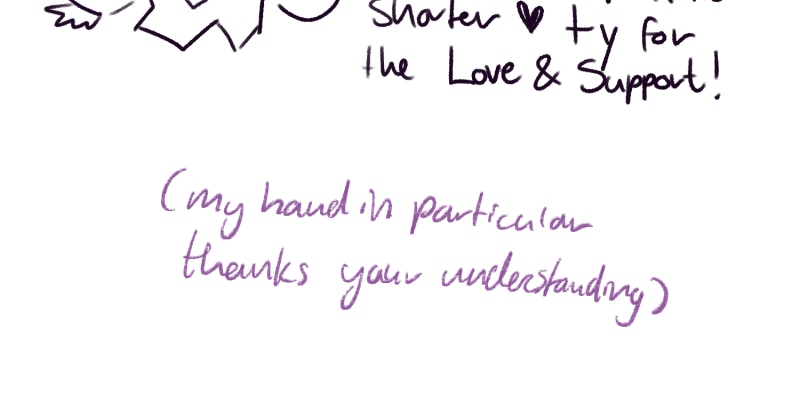 shorter ♥ ty for
the Love & Support!
(my hand in particular
thanks your understanding)